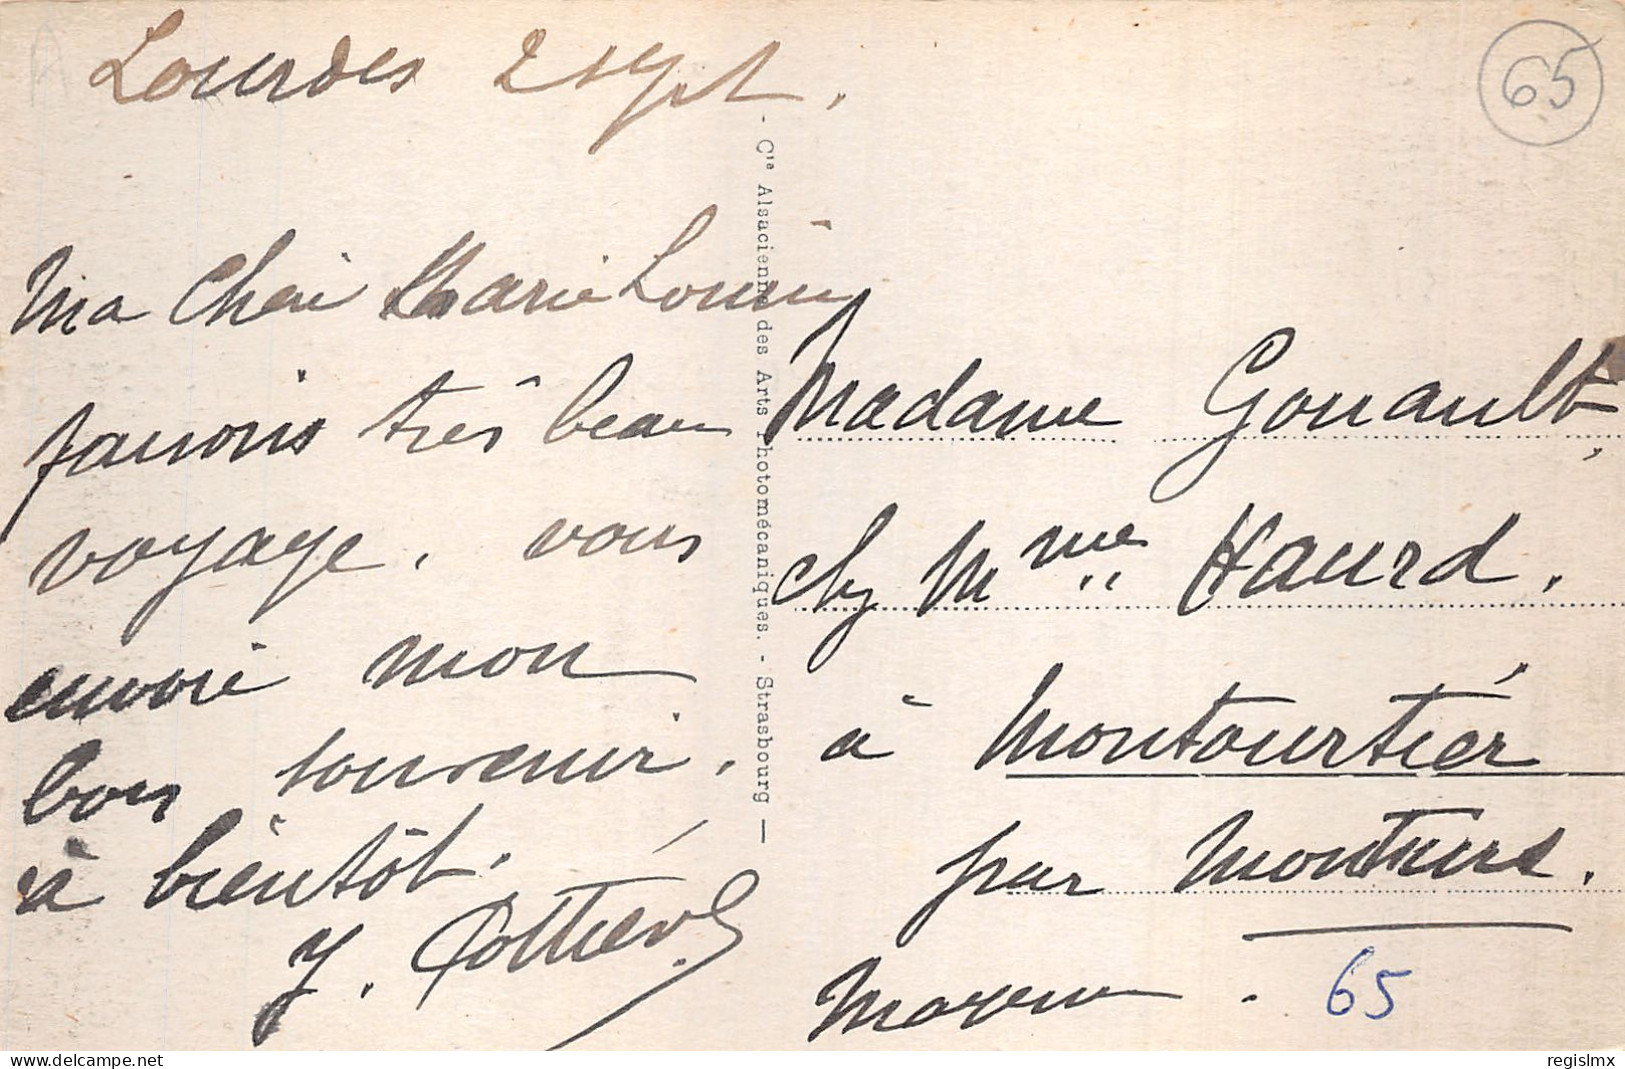 Lourdes 2 sept.
65
Ma Chère Marie Louise
faisons très beau
voyage. vous
envoie mon
bon souvenir.
à bientôt.
Y. Pottier
- Cie Alsacienne des Arts Photomécaniques. - Strasbourg —
Madame Gouault
chez Mme Haurd.
à Montourtier
par Montsurs.
Mayenne. 65
regislmx